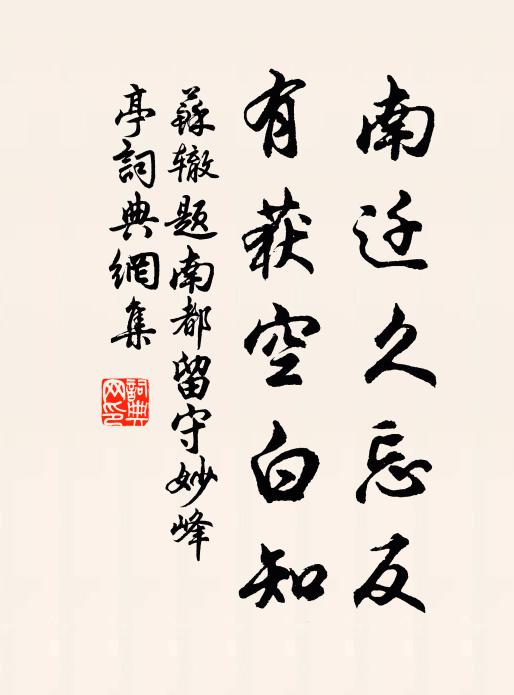 南迁久忘反
有获空白知
蘇辙题南都留守妙峰
亭詞典網集
詞典網印